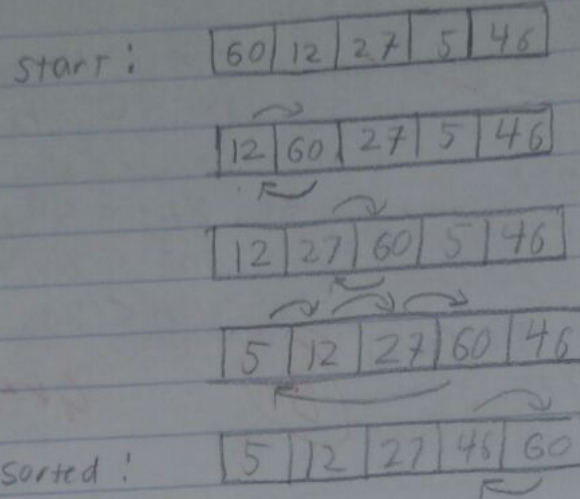 Start: 60 12 27 5 46
12 60 27 5 46
12 27 60 5 46
5 12 27 60 46
Sorted: 5 12 27 46 60